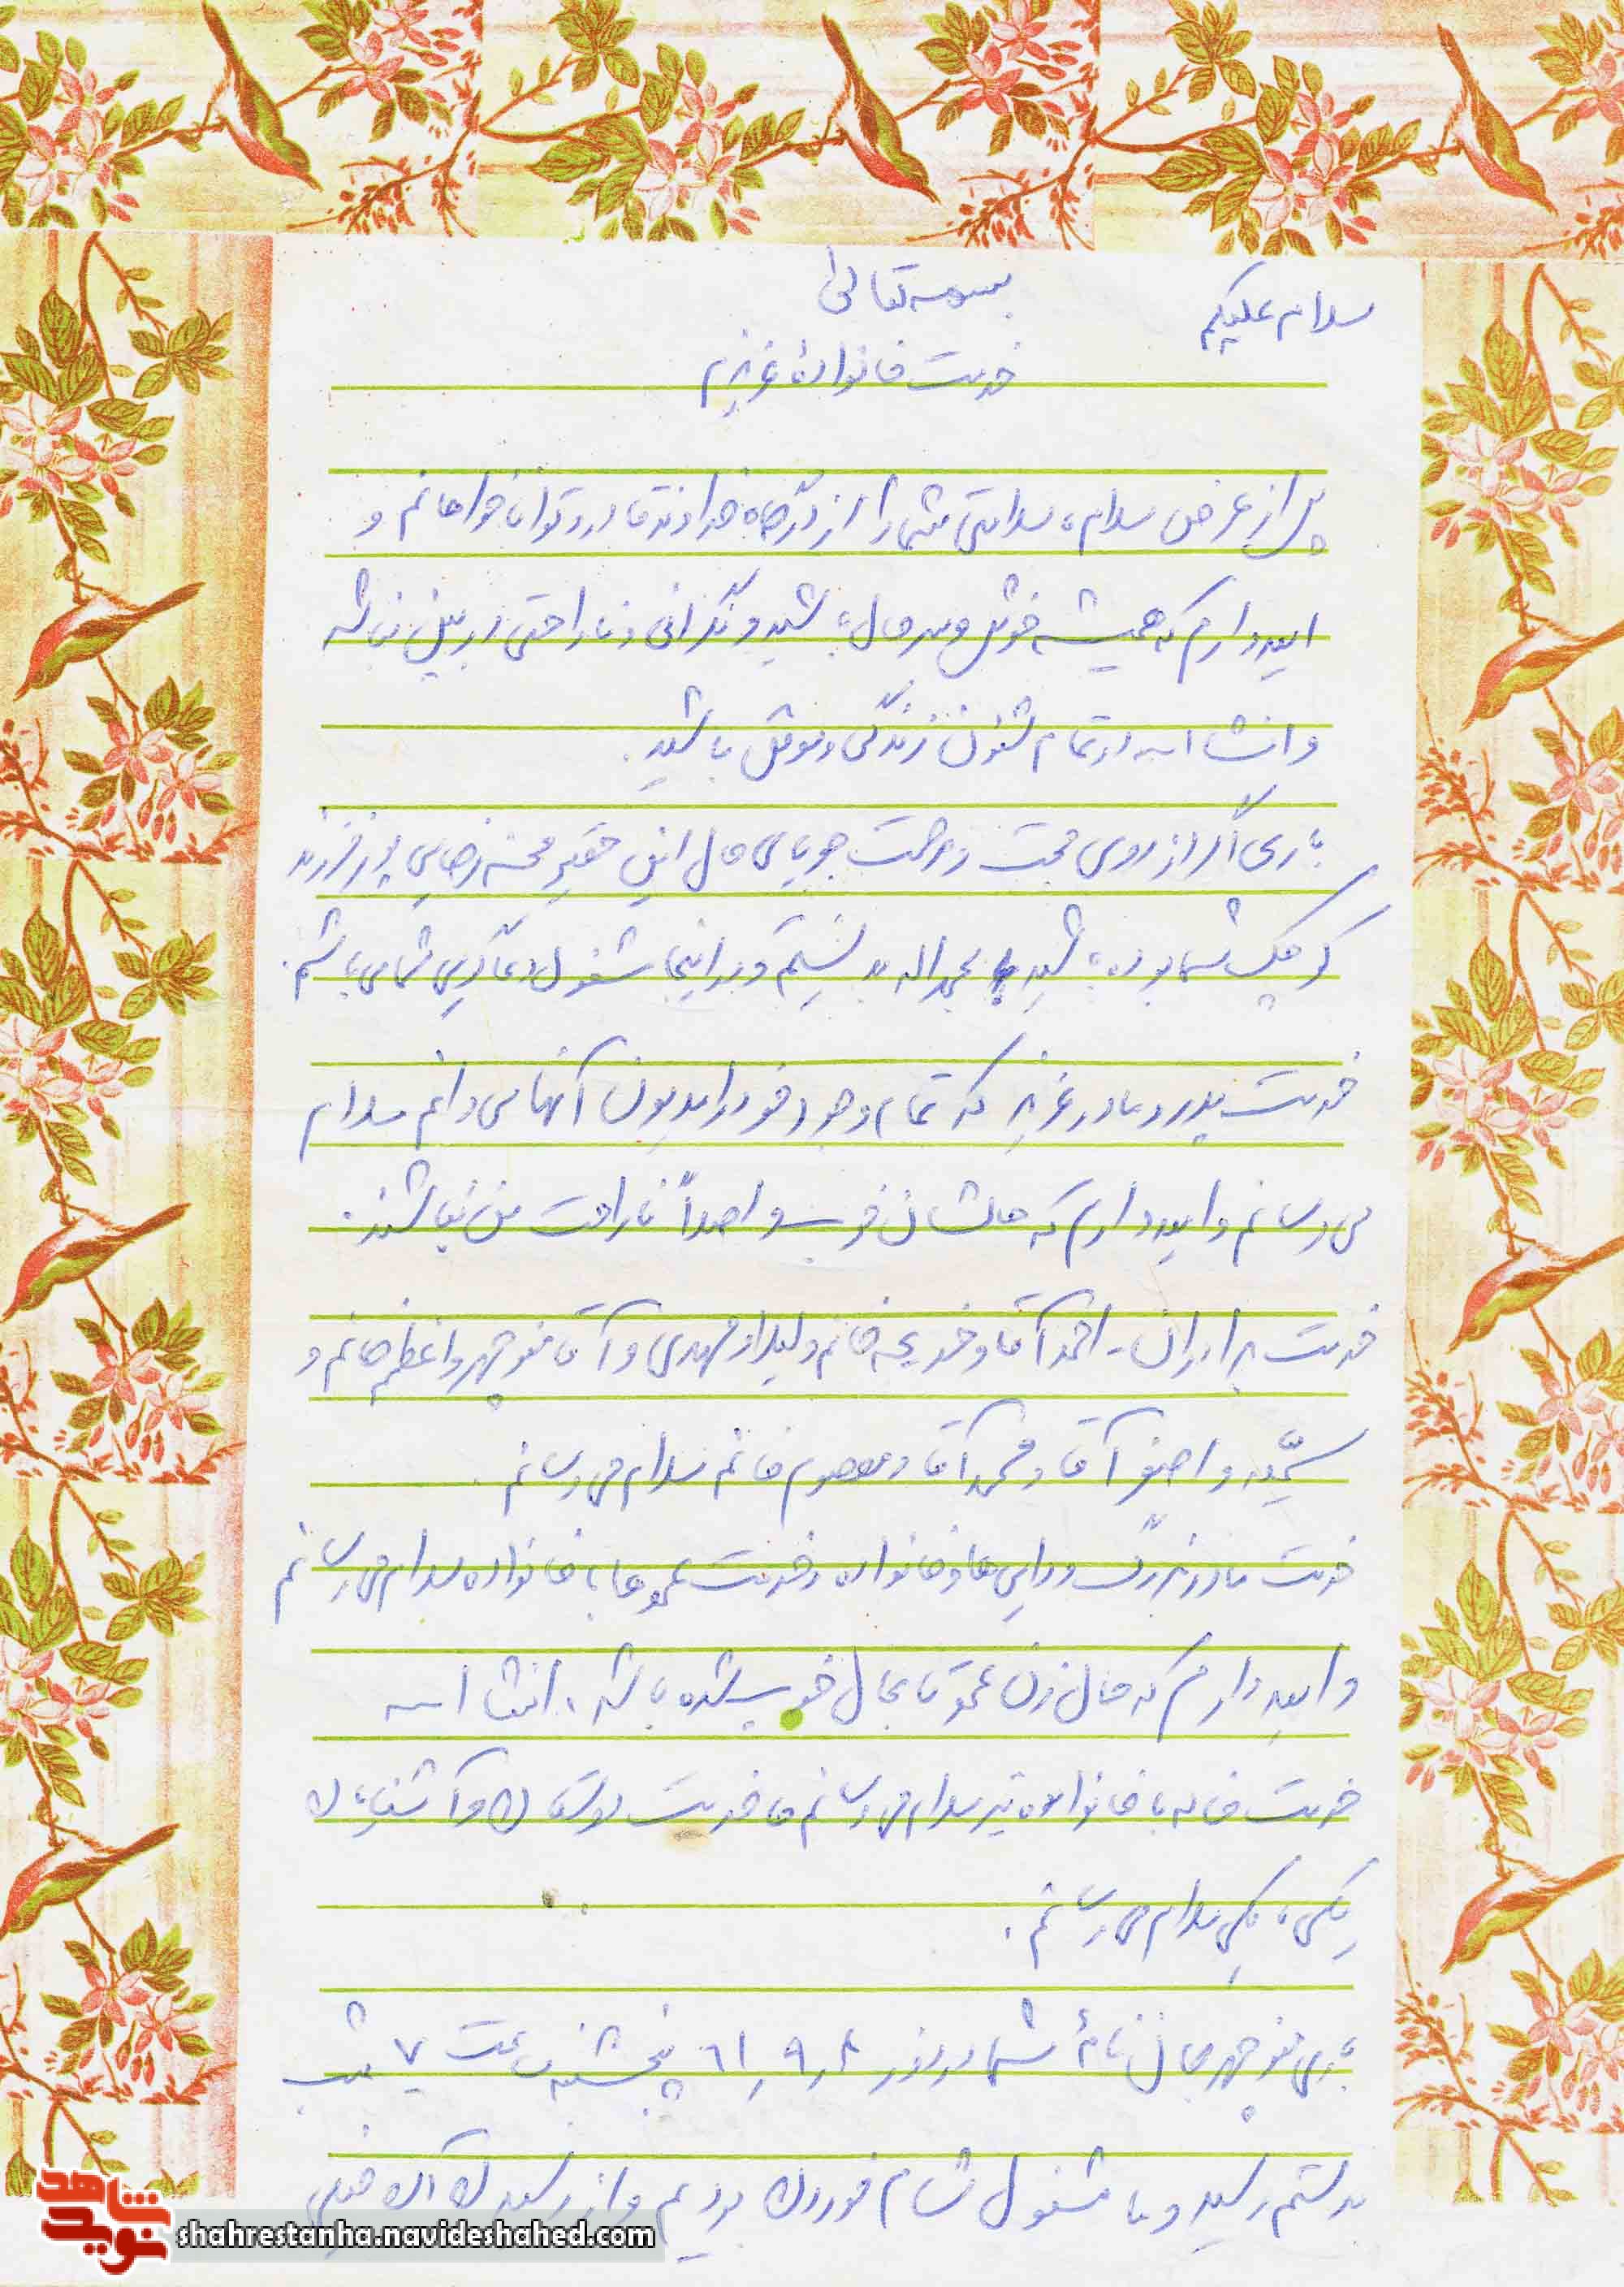 بسمه تعالی
سلام علیکم
خدمت خانوادهٔ عزیزم
پس از عرض سلام، سلامتی شما را از درگاه خداوند قادر و توانا خواهانم و
امیدوارم که همیشه خوش و سرحال باشید و نگرانی و ناراحتی در بین نباشد
و انشااله در تمام شئون زندگی موفق باشید.
باری اگر از روی محبت جویای حال این حقیر محسن رضایی فرزند
کوچک شما بوده باشید بحمداله بد نیستم و در اینجا مشغول دعاگویی شما می باشم.
خدمت پدر و مادر عزیز که تمام وجود خود را مدیون آنها می دانم سلام
می رسانم و امیدوارم که حالشان خوب و اصلاً ناراحت من نباشند.
خدمت برادران - احمد آقا و خدیجه خانم و لیلا و مهدی و آقا منوچهر و اعظم خانم و
سمیه و اصغر آقا و محمد آقا و معصوم خانم سلام می رسانم.
خدمت مادربزرگ و دایی ها و خانواده و خدمت عموها با خانواده سلام می رسانم
و امیدوارم که حال زن عمو تا بحال خوب شده باشد. انشااله
خدمت خاله با خانواده نیز سلام می رسانم خدمت دوستان و آشنایان
یکی، یکی سلام می رسانم.
باری منوچهر جان نامهٔ شما در روز ۶۱/۹/۸ پنجشنبه ساعت ۷ شب
بدستم رسید و ما مشغول شام خوردن بودیم و از رسیدن آن خیلی
نوید شاهد
shahrestanha.navideshahed.com